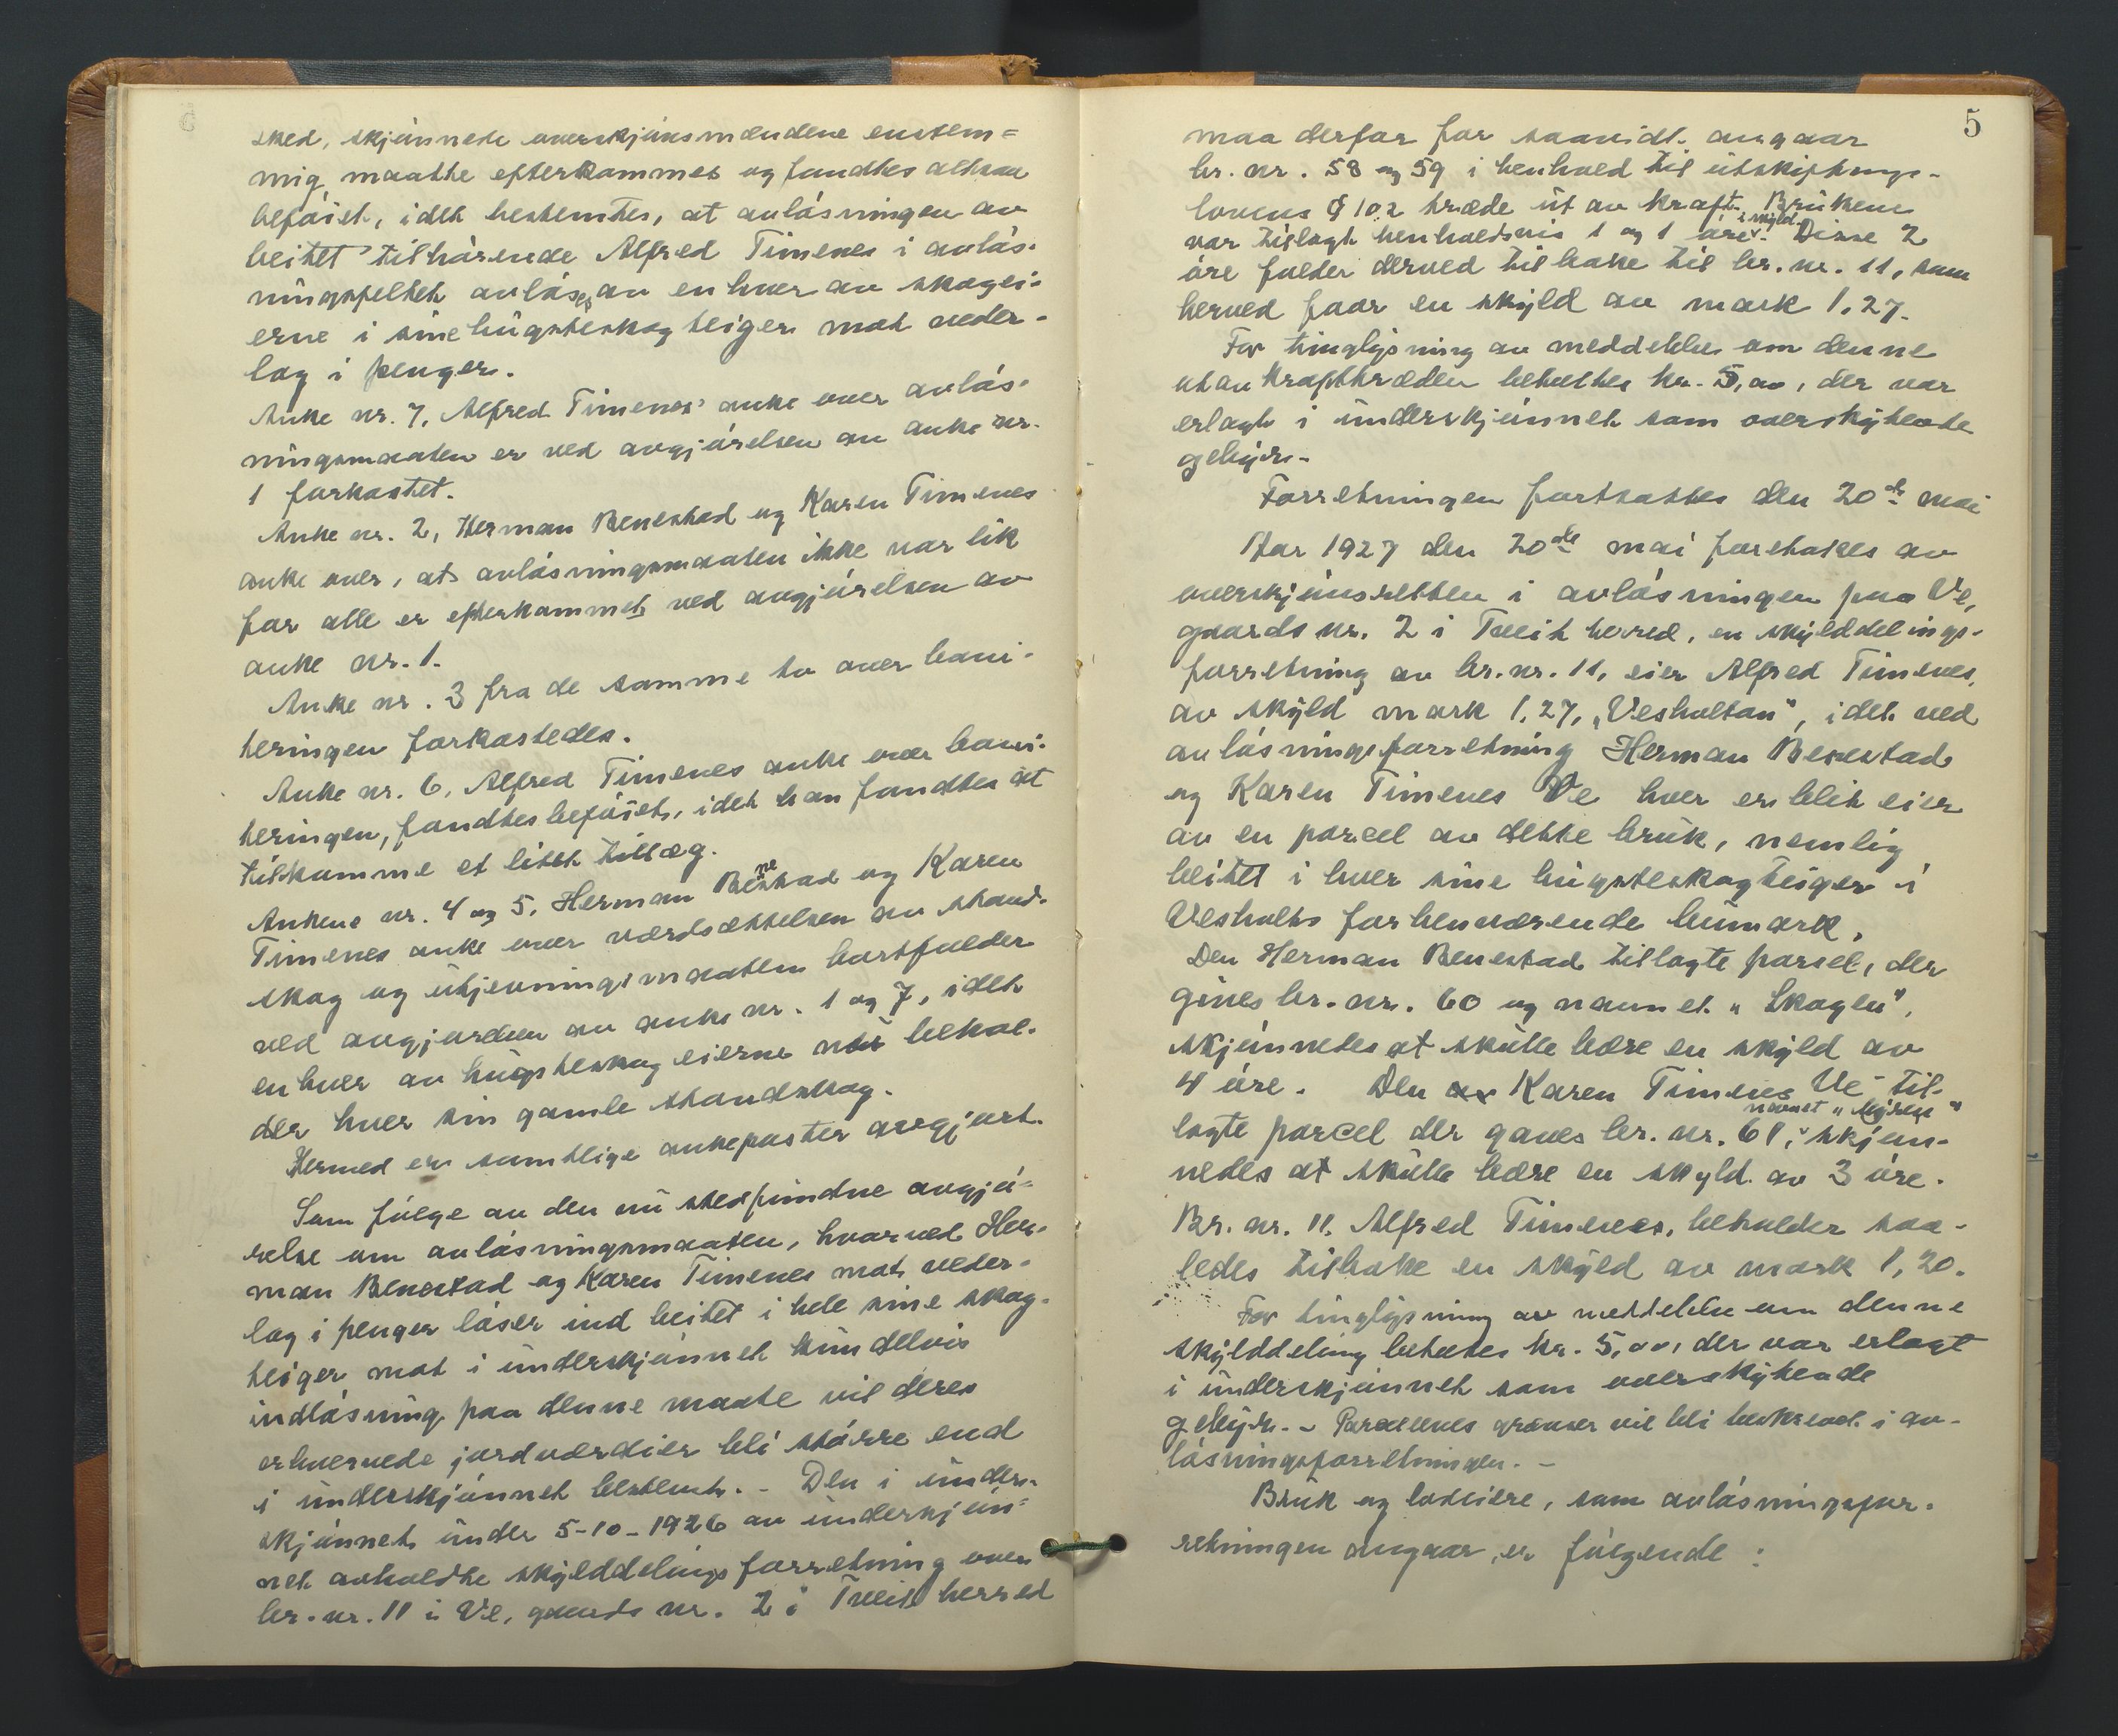 sked, skjønnede overskjønsmændene enstem=
mig maatte efterkommes og fandtes altsaa
beføiet, idet bestemtes, at avløsningen av
beitet tilhørende Alfred Timenes i avløs-
ningsfeltet avløses av enhver av skogei-
erne i sine hugsteskogteiger mot veder-
lag i penger.
Anke nr. 7, Alfred Timenes' anke over avløs-
ningsmaaten er ved avgjørelsen av anke nr.
1 forkastet.
Anke nr. 2, Herman Benestad og Karen Timenes
anke over, at avløsningsmaaten ikke var lik
for alle er efterkommet ved avgjørelsen av
anke nr. 1.
Anke nr. 3 fra de samme to over boni-
teringen forkastedes.
Anke nr. 6, Alfred Timenes anke over boni-
teringen, fandtes beføiet, idet han fandtes at
tilkomme et litet tillæg.
Ankene nr. 4 og 5, Herman Benestad og Karen
Timenes anke over værdsættelsen av stand-
skog og utjevningsmaaten bortfalder
ved avgjørelsen av anke nr. 1 og 7, idet
enhver av hugsteskogeierne nu behol-
der hver sin gamle standskog.
Hermed er samtlige ankeposter avgjort.
Som følge av den nu stedfundne avgjø-
relse om avløsningsmaaten, hvorved Her-
man Benestad og Karen Timenes mot veder-
lag i penger løser ind beitet i hele sine skog-
teiger mot i underskjønnet kun delvis
indløsning paa denne maate vil deres
erhvervede jordværdier bli større end
i underskjønnet bestemt. - Den i under-
skjønnet under 5-10-1926 av underskjøn=
net avholdte skylddelingsforretning over
br. nr. 11 i Ve, gaards nr. 2 i Tveit herred
5
maa derfor for saavidt angaar
br. nr. 58 og 59 i henhold til utskiftnings-
lovens § 102 træde ut av kraft. Brukene
var tillagt henholdsvis 1 og 1 øre i skyld. Disse 2
øre falder derved tilbake til br. nr. 11, som
herved faar en skyld av mark 1,27.
For tinglysning av meddelelse om denne
utavkrafttræden betaltes kr. 5,00, der var
erlagt i underskjønnet som overskytende
gebyr. -
Forretningen fortsattes den 20de mai
Aar 1927 den 20de mai foretokes av
overskjønsretten i avløsningen paa Ve,
gaards nr. 2 i Tveit herred, en skylddelings-
forretning av br. nr. 11, eier Alfred Timenes,
av skyld mark 1,27, „Vesholtan", idet ved
avløsningsforretning Herman Benestad
og Karen Timenes Ve hver er blit eier
av en parcel av dette bruk, nemlig
beitet i hver sine hugsteskogteiger i
Vesholts forhenværende bumark.
Den Herman Benestad tillagte parsel, der
gives br. nr. 60 og navnet „Skogen",
skjønnedes at skulle bære en skyld av
4 øre. Den Karen Timenes Ve til-
lagte parcel der gaves br. nr. 61, navnet „Myrene" skjøn-
nedes at skulle bære en skyld av 3 øre.
Br. nr. 11, Alfred Timenes, beholder saa-
ledes tilbake en skyld av mark 1,20.
For tinglysning av meddelelse om denne
skylddeling betaltes kr. 5,00, der var erlagt
i underskjønnet som overskytende
gebyr. - Parcellenes grænser vil bli beskrevet i av-
løsningsforretningen. -
Bruk og lodeiere, som avløsningsfor-
retningen angaar, er følgende :